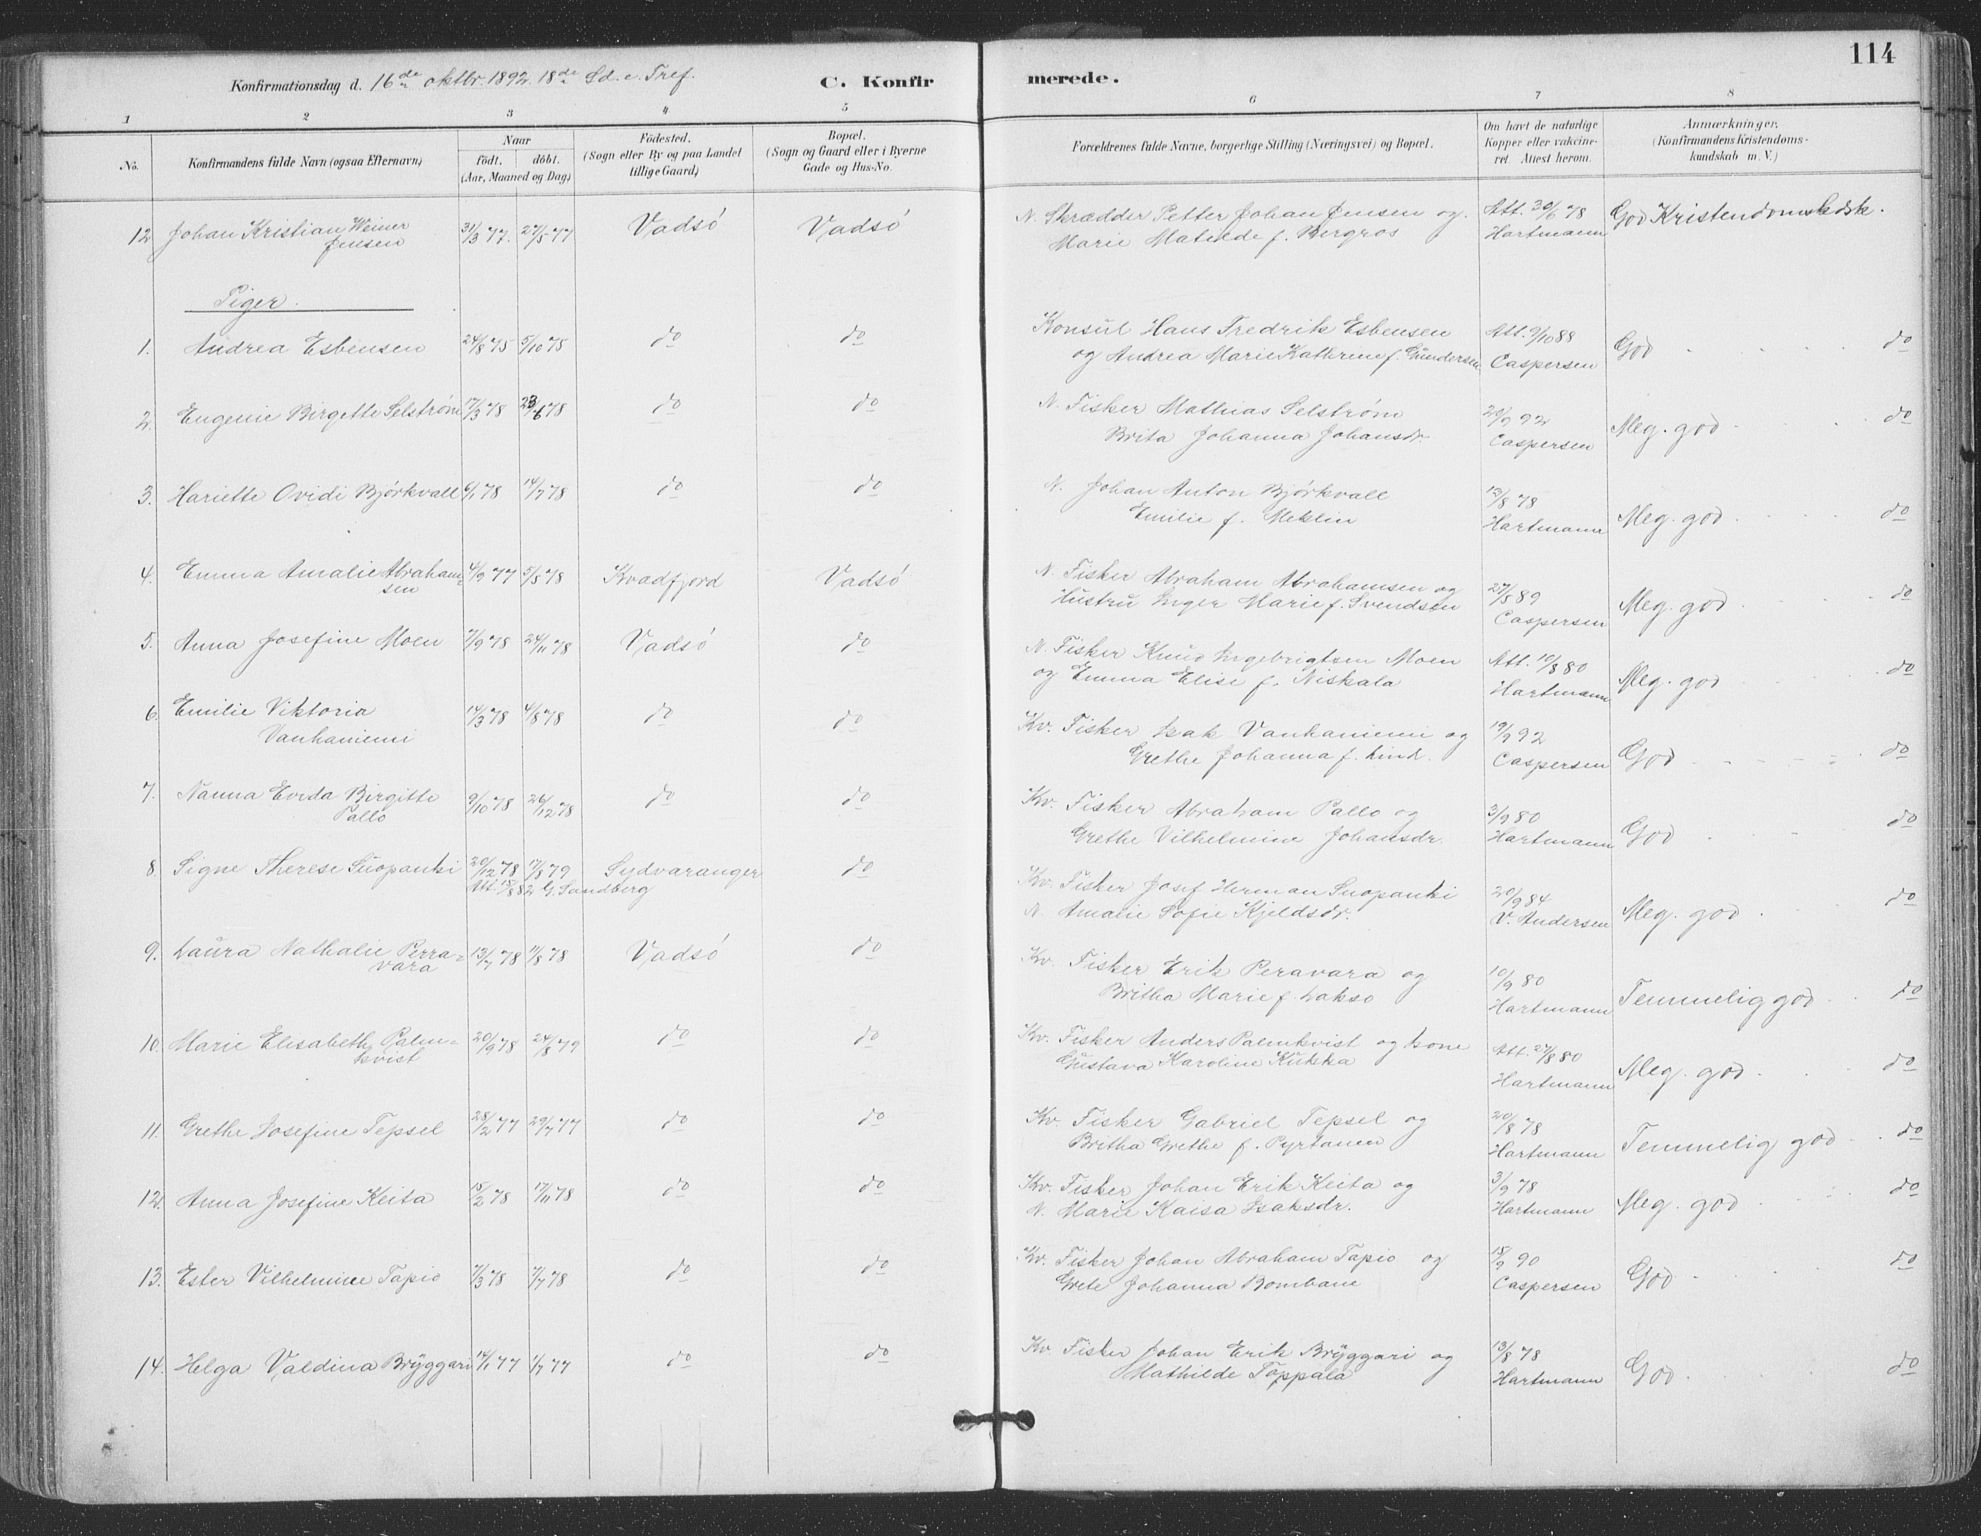 114
Konfirmationsdag d. 16de oktbr. 1892. 18de Sd. e. Tref. C. Konfirmerede.
1 2 3 4 5 6 7 8
No. Konfirmandens fulde Navn (ogsaa Efternavn) Naar født, døbt. (Aar, Maaned og Dag) Fødested. (Sogn eller By og paa Landet tillige Gaard) Bopæl. (Sogn og Gaard eller i Byerne Gade og Hus-No. Forældrenes fulde Navne, borgerlige Stilling (Næringsvei) og Bopæl. Om havt de naturlige Kopper eller vakcineret. Attest herom. Anmærkninger. (Konfirmandens Kristendomskundskab m. V.)
12 Johan Kristian Weiner Jensen 31/3 77. 27/5 77 Vadsö Vadsö N. Skrædder Petter Johan Jensen og Marie Matilde f. Bergros Att. 30/6 78 Hartmann God Kristendomskdsk.
Piger.
1. Andrea Esbensen 24/8 75 5/10 75 do do Konsul Hans Fredrik Esbensen og Andrea Marie Kathrine f. Gundersen Att. 9/10 88 Caspersen God do
2. Engenie Birgette Selström 17/3 78 23/6 78 do do N. Fisker Mathias Selström Brita Johanna Johansdr. 20/9 92 Caspersen Meg. god do
3. Hariette Ovidi Bjørkvall 6/1 78 14/7 78 do do N. Johan Anton Bjørkvall Emilie f. Meklin 12/8 78 Hartmann Meg. god do
4. Emma Amalie Abrahamsen 4/9 77 5/8 78 Kvadfjord Vadsö N. Fisker Abraham Abrahamsen og Hustru Inger Marie f. Svendsen 27/5 89 Caspersen Meg. god do
5. Anna Josefine Moen 7/9 78 24/11 78 Vadsö do N. Fisker Knud Ingebrigtsen Moen og Emma Elise f. Niskala Att. 10/8 80 Hartmann Meg. god do
6. Emilie Viktoria Vanhaniemi 14/3 78 4/8 78 do do Kv. Fisker Isak Vanhaniemi og Grethe Johanna f. Lind. 19/9 92 Caspersen God do
7. Nanna Evida Birgitte Pallo 9/10 78 26/12 78 do do Kv. Fisker Abraham Pallo og Grethe Vilhelmine Johansdr. 3/9 80 Hartmann God do
8. Signe Therese Suopanki 20/12 78 17/8 79 Sydvaranger do Kv. Fisker Josef Herman Suopanki N. Amalie Sofie Kjeldsdr. 20/9 84 V. Andersen Meg. god do
Att. 15/8 82 G. Sandberg
9. Laura Nathalie Perravara 13/7 78 11/8 78 Vadsö do Kv. Fisker Erik Peravara og Britha Marie f. Lakso 10/9 80 Hartmann Temmelig god do
10. Marie Elisabeth Palmkvist 20/9 78 24/8 79 do do Kv. Fisker Anders Palmkvist og kone Gustava Karoline Kukka Att. 27/8 80 Hartmann Meg. god do
11. Grethe Josefine Tepsel 28/2 77 29/7 77 do do Kv. Fisker Gabriel Tepsel og Britha Grethe f. Pyrtanen 20/8 78 Hartmann Temmelig god do
12. Anna Josefine Keita 15/2 78 17/11 78 do do Kv. Fisker Johan Erik Keita og N. Marie Kaisa Isaksdr. 3/9 78 Hartmann Meg. god do
13. Ester Vilhelmine Tapio 7/3 78 7/7 78 do do Kv. Fisker Johan Abraham Tapio og Grete Johanna Bombane 18/9 90 Caspersen God do
14. Helga Valdina Brÿggari 14/1 77 1/7 77 do do Kv. Fisker Johan Erik Brÿggari og Mathilde Toppala 13/8 78 Hartmann God do